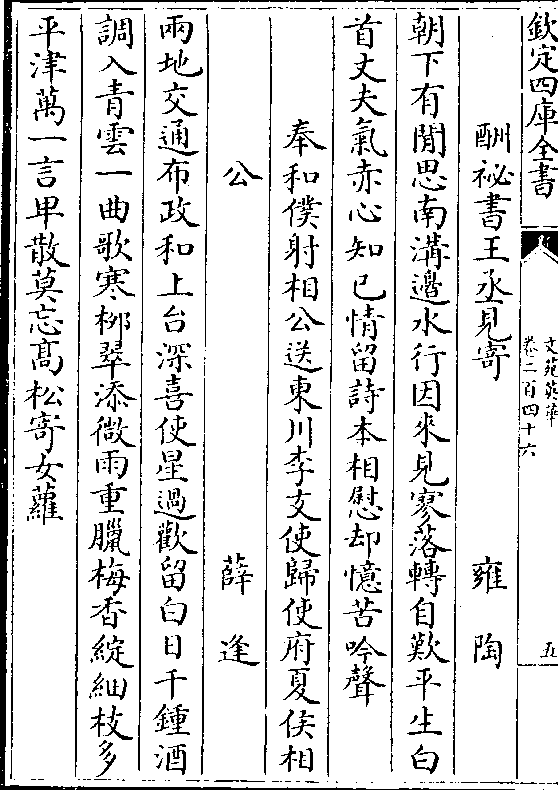 欽定四庫全書
文苑英華
卷二百四十六
五
酬祕書王丞見寄 雍陶
朝下有閒思南溝邊水行因來見寥落轉自歎平生白
首丈夫氣赤心知已情留詩本相慰却憶苦吟聲
奉和僕射相公送東川李支使歸使府夏侯相
公 薛逢
兩地交通布政和上台深喜使星過歡留白日千鍾酒
調入青雲一曲歌寒栁翠添微雨重臘梅香綻細枝多
平津萬一言卑散莫忘髙松寄女蘿